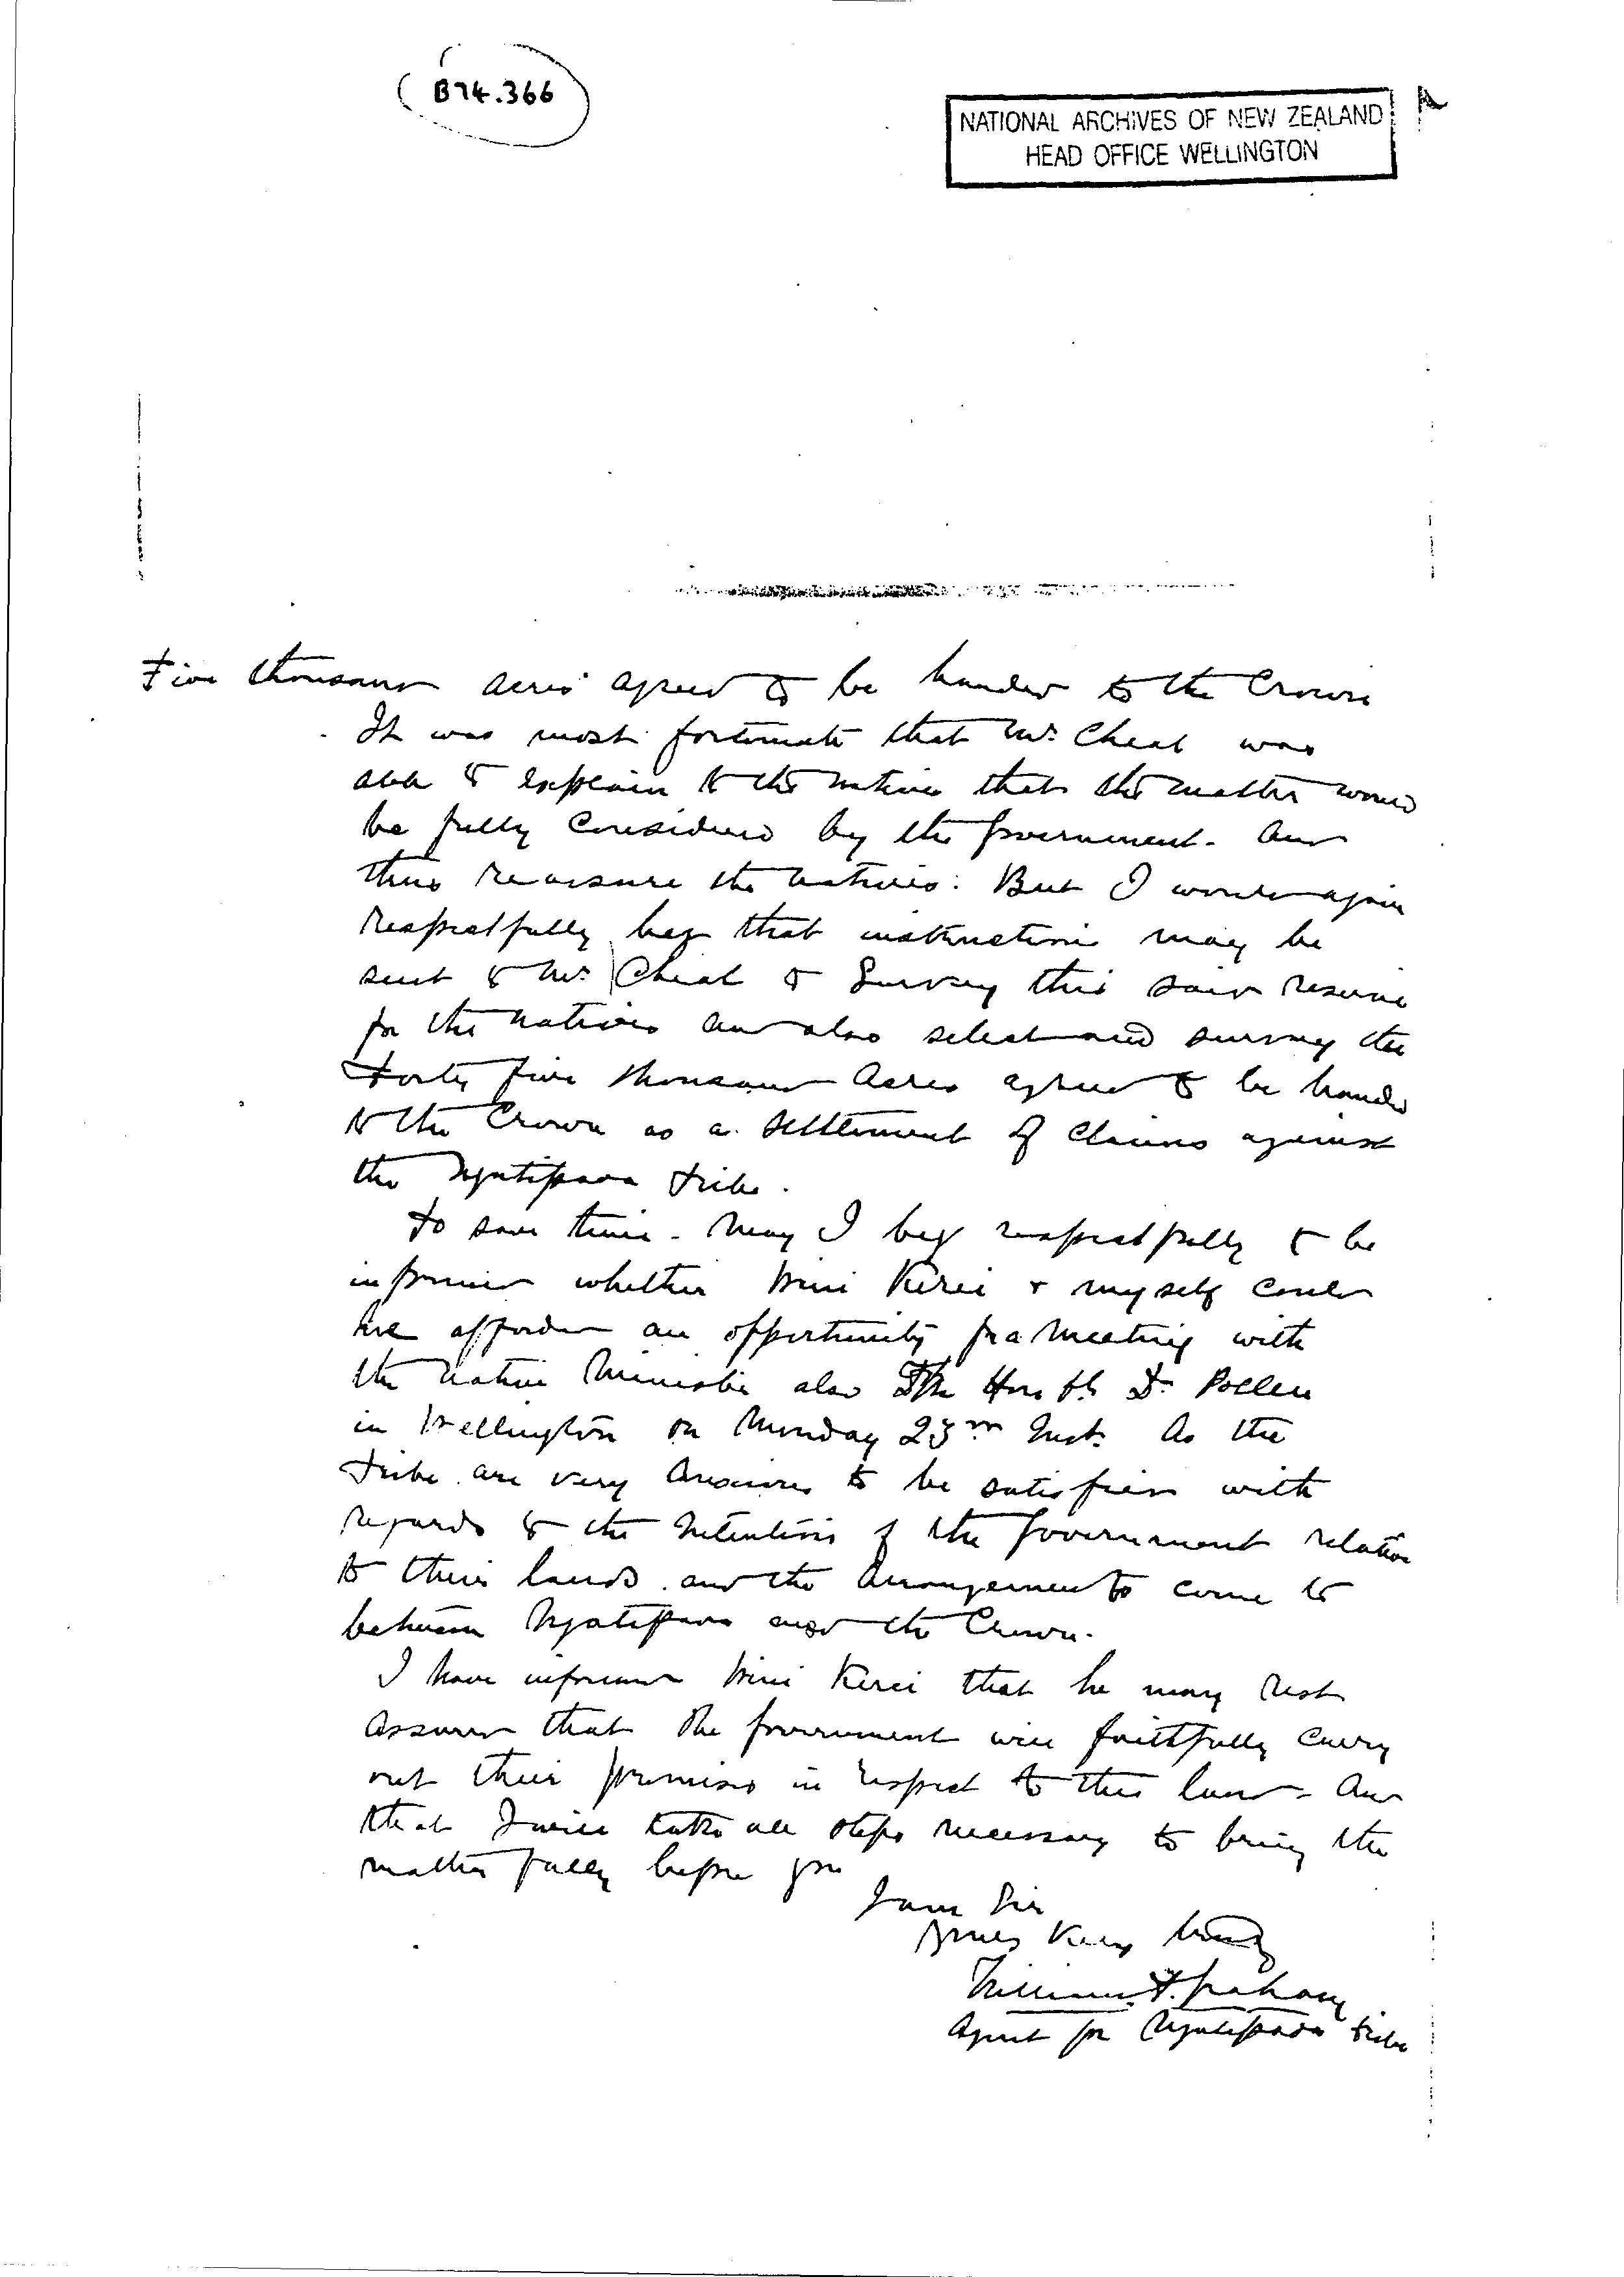 (B74.366)
NATIONAL ARCHIVES OF NEW ZEALAND
HEAD OFFICE WELLINGTON
Five thousand acres agreed to be handed to the Crown
It was most fortunate that Mr. Cheal was
able to explain to the natives that the matter would
be fully considered by the Government - and
thus reassure the natives: But I would again
respectfully beg that instructions may be
sent to Mr. Cheal to Survey this said reserve
for the natives and also select and survey the
Forty five thousand acres agreed to be handed
to the Crown as a settlement of claims against
the Ngatipaoa tribe.
To save time - May I beg respectfully to be
informed whether Wini Kerei & myself could
be afforded an opportunity for a meeting with
the Native Minister also The Honble Dr. Pollen
in Wellington on Monday 23rd Inst. As the
Tribe are very anxious to be satisfied with
regards to the intentions of the Government relation
to their lands and the arrangements come to
between Ngatipaoa and the Crown.
I have informed Wini Kerei that he may rest
assured that the Government will faithfully carry
out their promises in respect to this land - and
that I will take all steps necessary to bring the
matter fully before you
I am Sir
Yours Very truly
William A. Graham
Agent for Ngatipaoa tribe